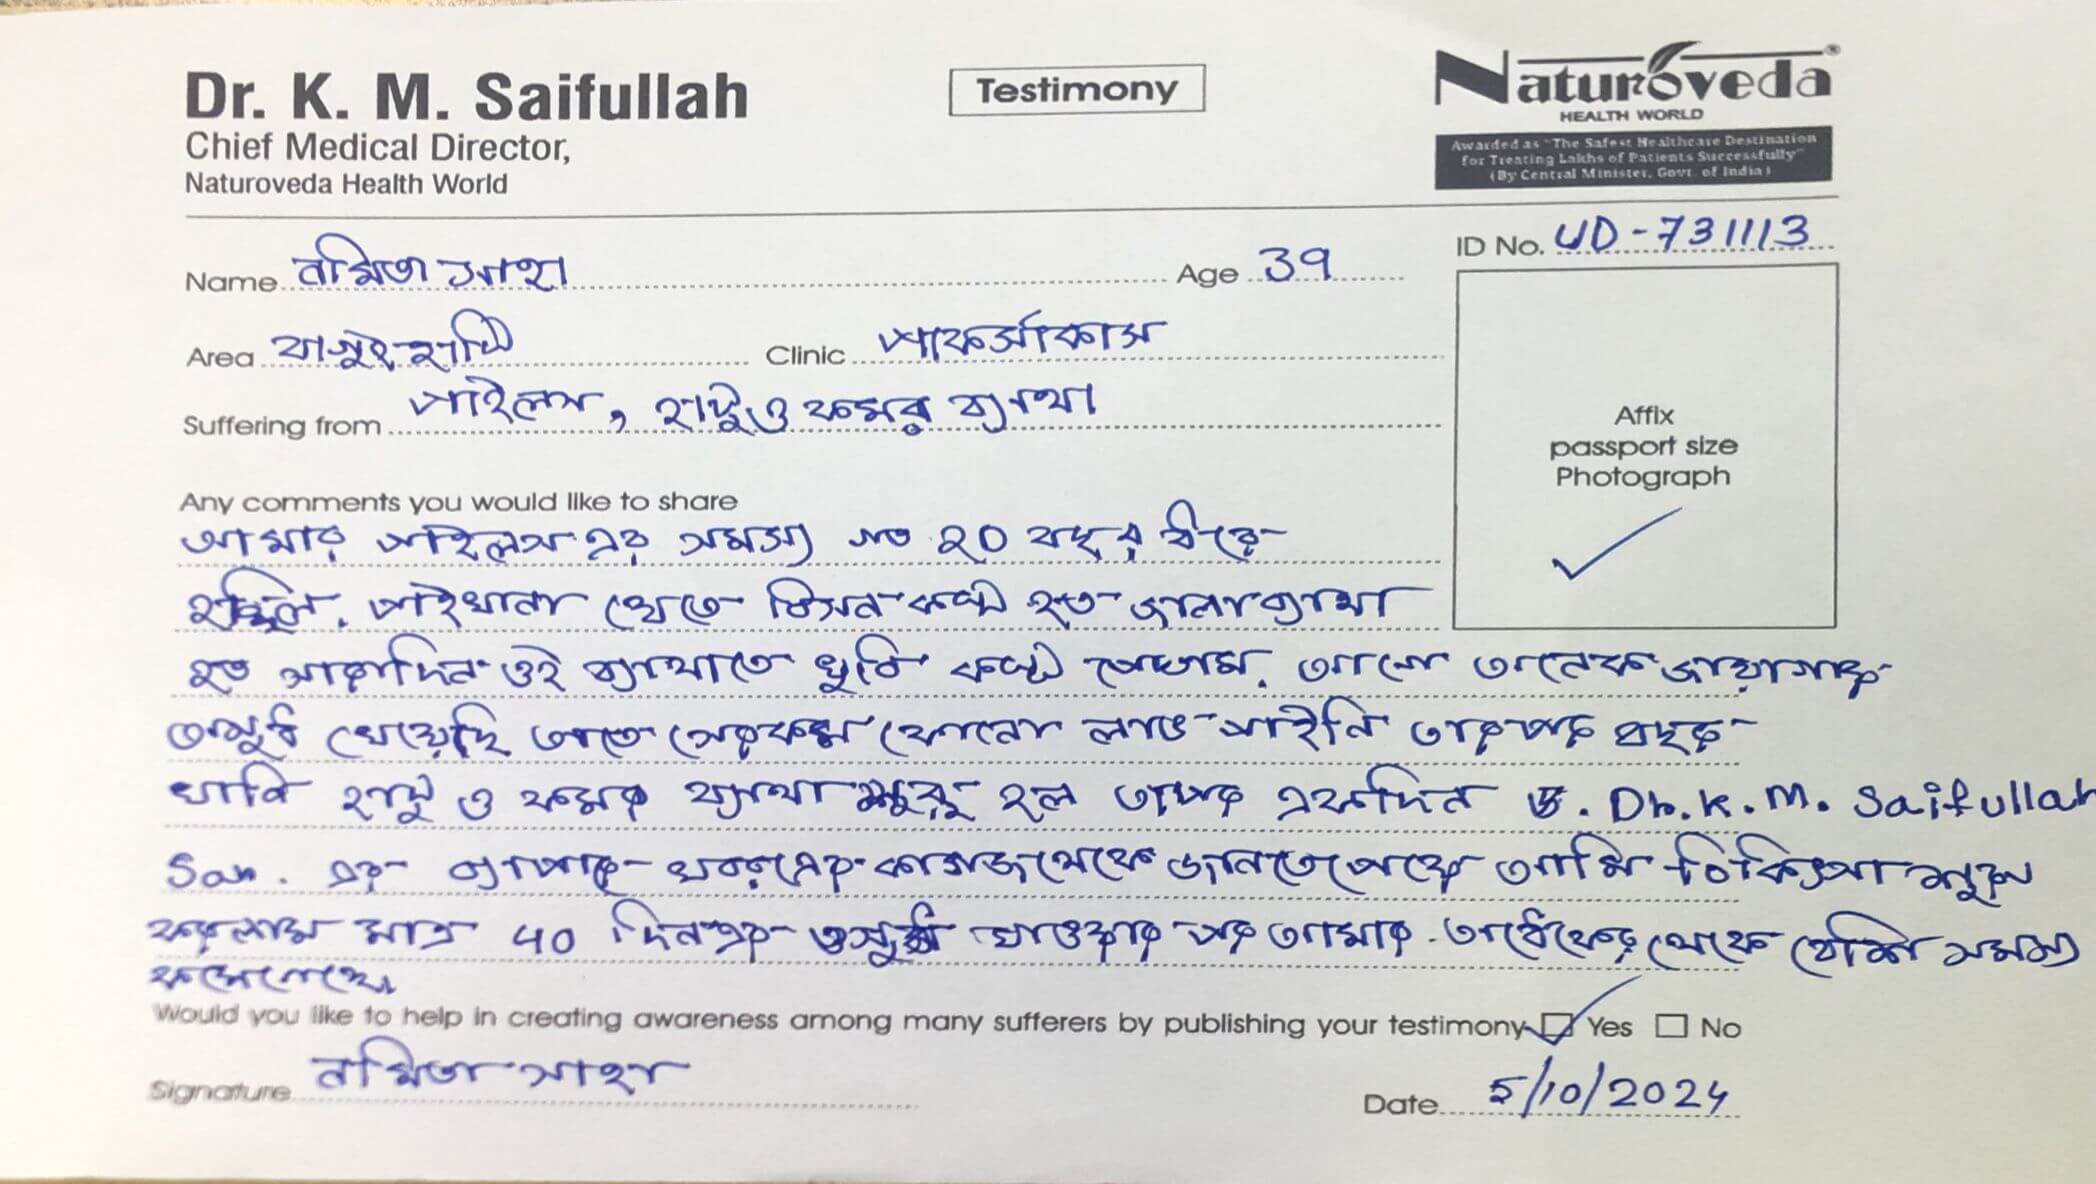 Dr. K. M. Saifullah
Chief Medical Director,
Naturoveda Health World
Testimony
Naturoveda®
HEALTH WORLD
Awarded as "The Safest Healthcare Destination
for Treating Lakhs of Patients Successfully"
(By Central Minister, Govt. of India)
ID No. UD-731113
Name নমিতা সাহা Age 39
Area বাগুইহাটি Clinic পার্কসার্কাস
Suffering from পাইলস, হাটু ও কমর ব্যাথা
Affix
passport size
Photograph
Any comments you would like to share
আমার পাইলস এর সমস্যা গত ২০ বছর ধরে
পাইখানা খেতে ভিসন কষ্ট হত জালা ব্যাথা
হত সারাদিন ওই ব্যাথাতে খুবি কষ্ট পেতাম. আগে অনেক জায়াগার
ওসুধ খেয়েছি তাতে সেরকম কোনো লাভ পাইনি তারপর
হাটু ও কমর ব্যাথা শুরু হল তাপর একদিন ড. Dr. K. M. Saifullah
Sar. এর ব্যাপারে খবরের কাগজ থেকে জানতে পেরে আমি চিকিৎসা শুরু
করলাম মাত্র 40 দিন এর ওসুধ খাওয়ার পর আমার অর্ধেকের থেকে বেশি সমস্যা
কমে গেছে।
Would you like to help in creating awareness among many sufferers by publishing your testimony Yes No
Signature নমিতা সাহা
Date 5/10/2024